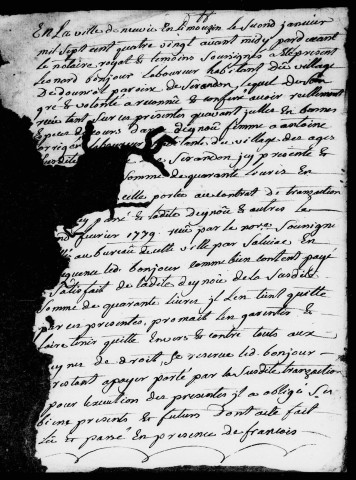 En la ville de neuvic en limouzin le second janvier
mil sept cent quatre vingt avant midy pardevant
le notaire royal et temoins soussignes a eté present
leonard bonjour laboureur habitant du village
de parroisse de Serandon lequel de son
gré & volonté a reconnu et confessé avoir reellement
reçu tant sur ces presentes qu'avant icelles en bonnes
Especes de cours d'anne deynoü femme a antoine
laboureur du village des ages
de Serandon icy presente &
somme de quarante livres en
celle portée au contrat de transaction
passé & ladite deynoü & autres la
fevrier 1779 reçu par le nore soussigné
au bureau de cette ville par Salviac En
quence led. bonjour comme bien content payé
Satisfait de ladite deynoü de la Susdite
Somme de quarante livres il En tient quitte
par ces presentes, promait les garentir &
faire tenir quitte Envers & contre tous aux
peynes de droit, se reserve led. bonjour
restant a payer porté par la Susdite transaction
pour l'execution des presentes il a obligé Ses
biens presents & futurs dont acte fait
lû & passé En presence de francois